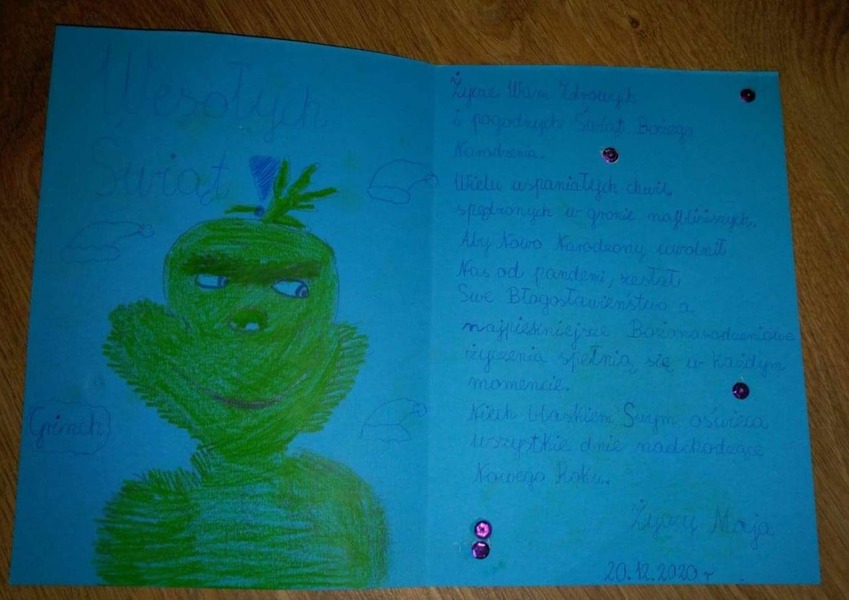 Wesołych
Świąt
Grinch
Życzę Wam Zdrowych
i pogodnych Świąt Bożego
Narodzenia.
Wielu wspaniałych chwil
spędzonych w gronie najbliższych.
Aby Nowo Narodzony uwolnił
Nas od pandemi, zesłał
Swe Błogosławieństwo a
najpiękniejsze Bożonarodzeniowe
życzenia spełnią się w każdym
momencie.
Niech blaskiem Swym oświeca
wszystkie dnie nadchodzące
Nowego Roku.
Życzy Maja
20.12.2020 r